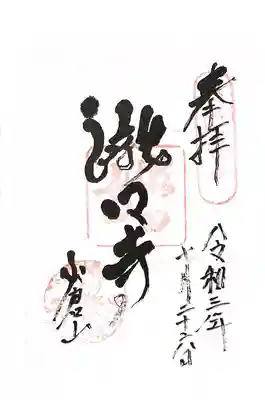 奉拝
滝口寺
小倉山
令和三年
十月二十六日